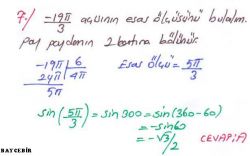 7./ -19π/3 açısının esas ölçüsünü bulalım.
Pay paydanın 2 katına bölünür.
-19π | 6
24π | 4π
5π
Esas ölçü = 5π/3
sin(5π/3) = sin300 = sin(360-60)
= -sin60
= -√3/2
CEVAP: A)
BAYCEBIR